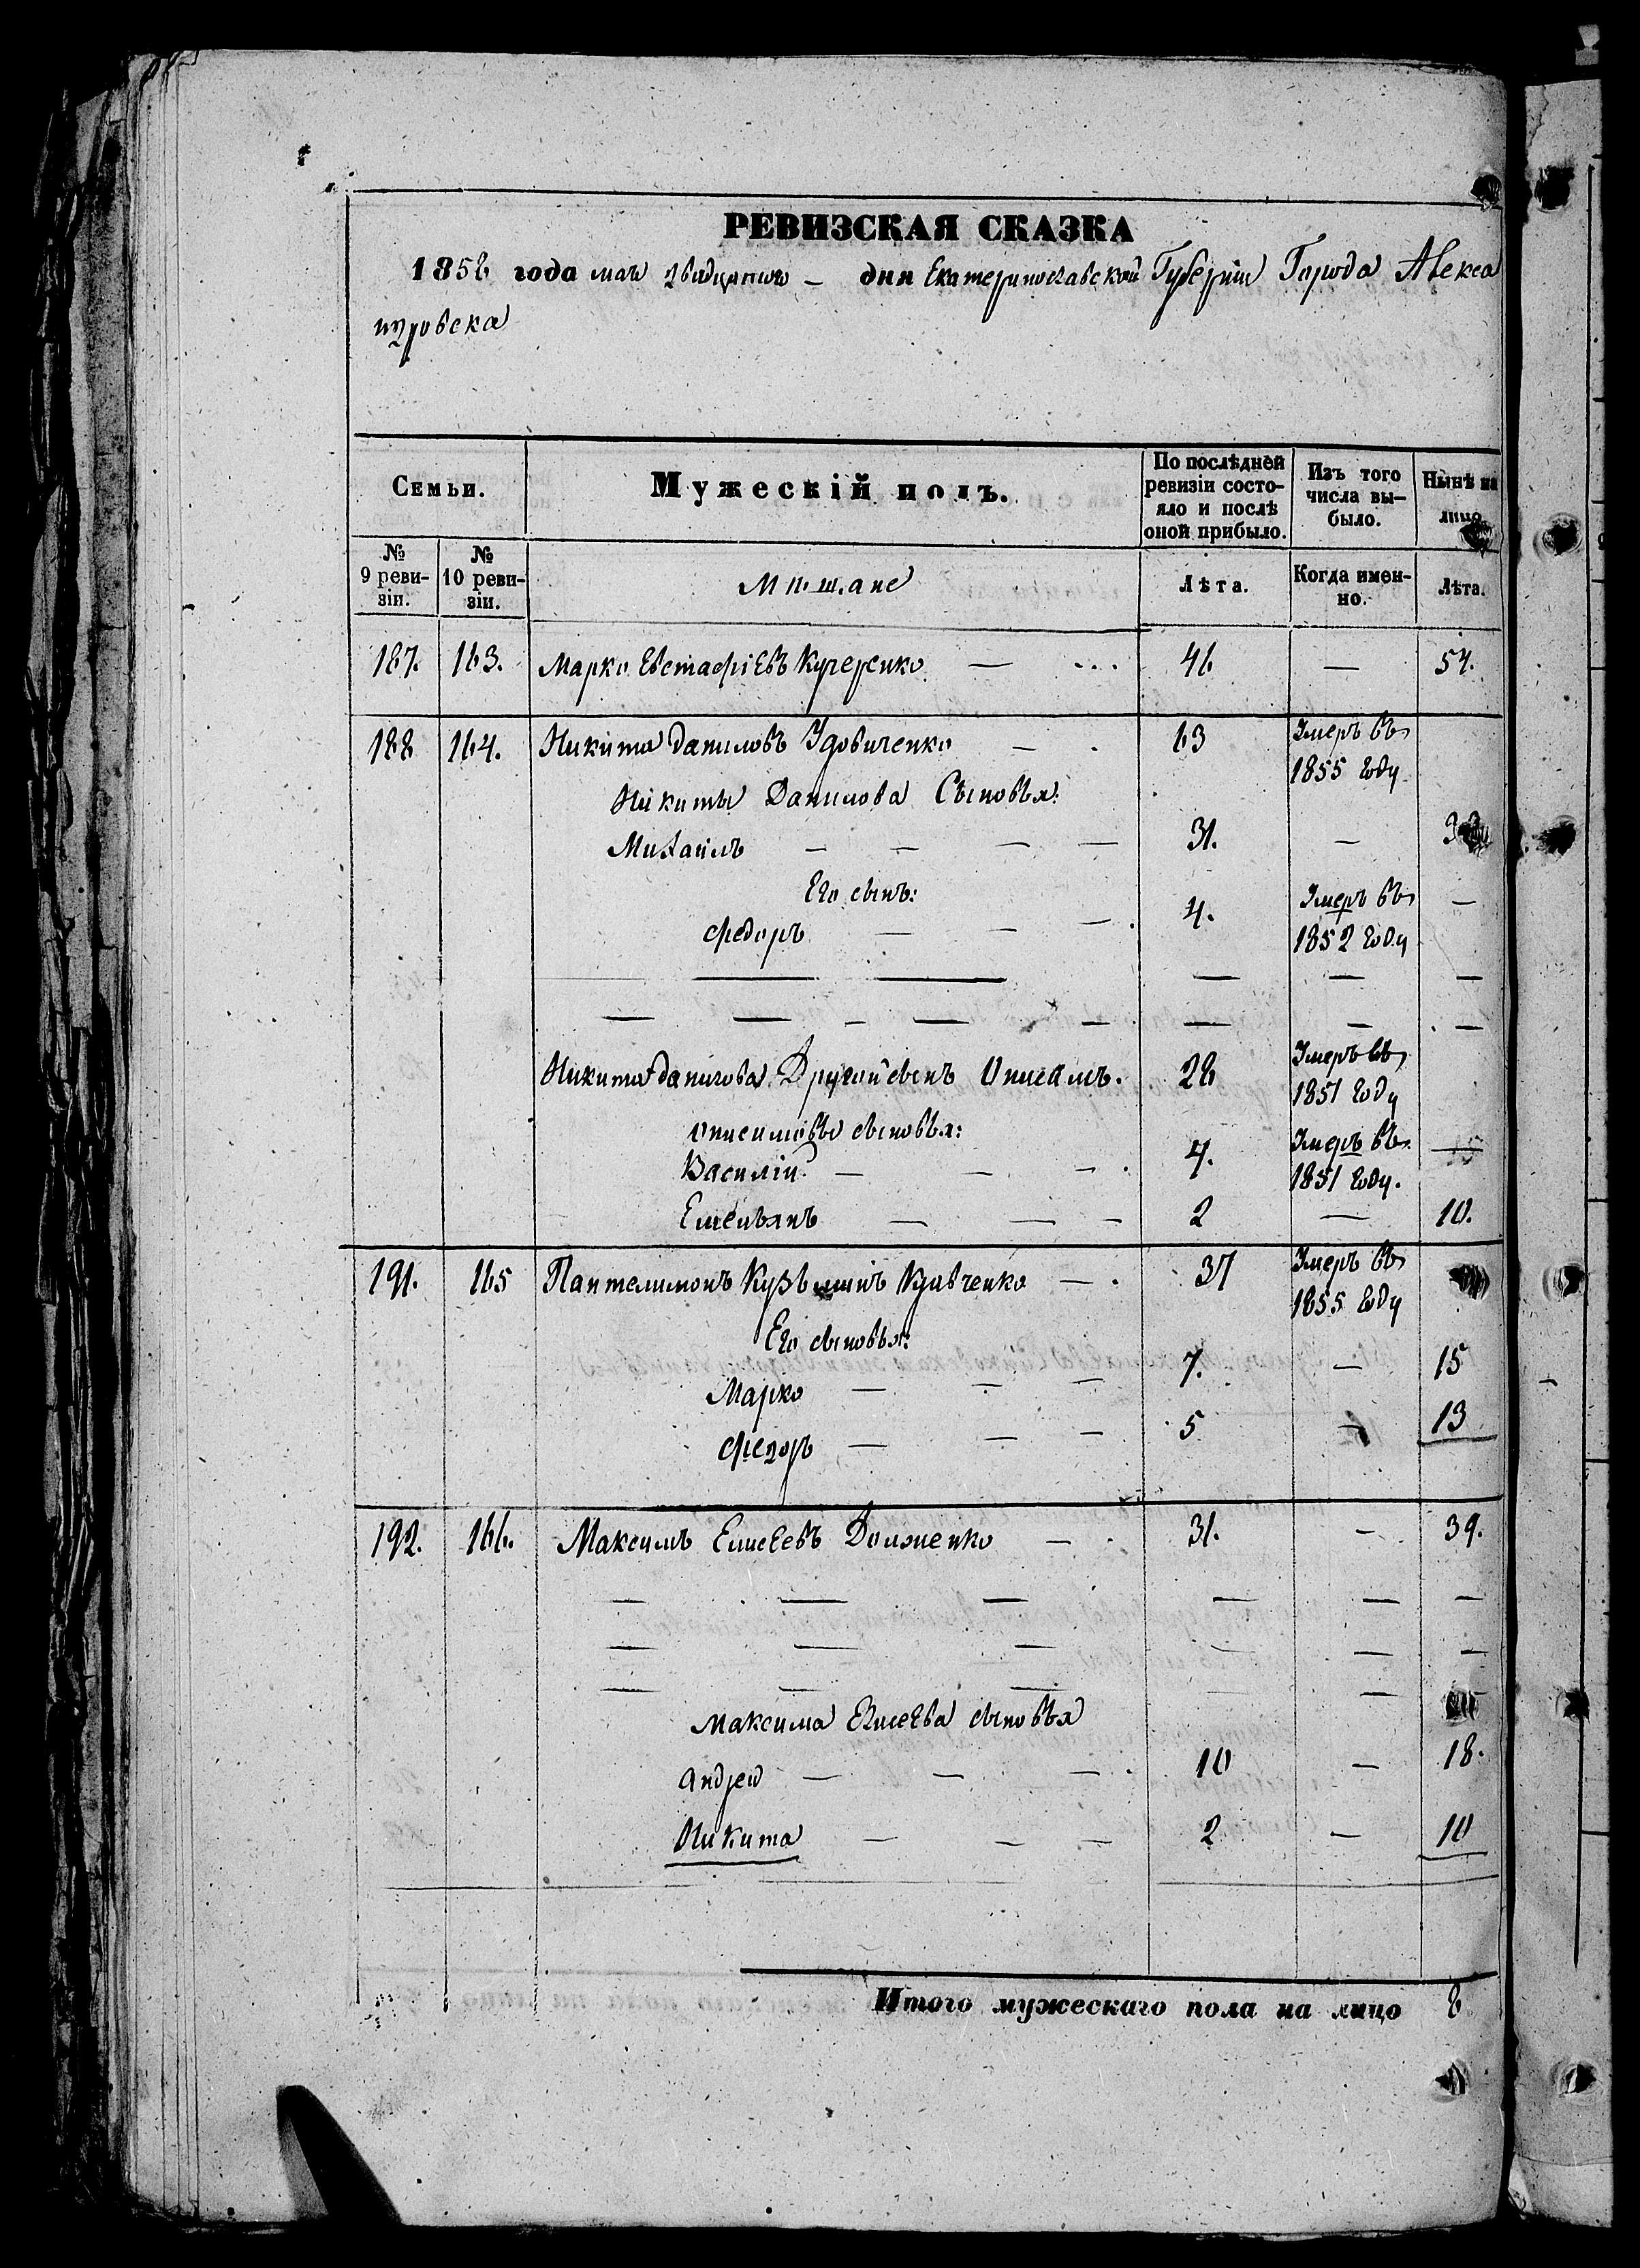 РЕВИЗСКАЯ СКАЗКА
1858 года мая двадцатого — дня Екатеринославской Губерніи Города Алекса
ндровска
Семьи.
Мужескій полъ.
По послѣдней ревизіи состо-
яло и послѣ
оной прибыло.
Изъ того
числа вы-
было.
Нынѣ на
лицо.
№
9 реви-
зіи.
№
10 реви-
зіи.
Мѣщане
Лѣта.
Когда имен-
но.
Лѣта.
187. 163. Марко Евстафіевъ Кучеренко — 46 — 54.
188 164. Никита Даниловъ Удовиченко — 63 Умеръ въ
1855 году.
Никиты Данилова Сыновья:
Михаилъ — — — — 31. —
Его сынъ:
Федоръ — — — 4. Умеръ въ —
1852 году
— — — — — —
— — — — — — — —
Никиты Данилова Другой сынъ Онисимъ. 28 Умеръ въ
1851 году
Онисимовы сыновья:
Василій — — — 4. Умеръ въ —
1851 году.
Емельянъ — — — 2 — 10.
191. 165 Пантелимонъ Кузьминъ Кравченко — 37 Умеръ въ
1855 году
Его сыновья:
Марко — — — 7. — 15
Федоръ — — — 5 — 13
192. 166. Максимъ Елисеевъ Долженко — 31. — 39.
— — — — — —
— — — — — —
— — — — —
Максима Елисеева сыновья
Андрей — — — 10 — 18.
Никита — — — 2 — 10
Итого мужескаго пола на лицо 8